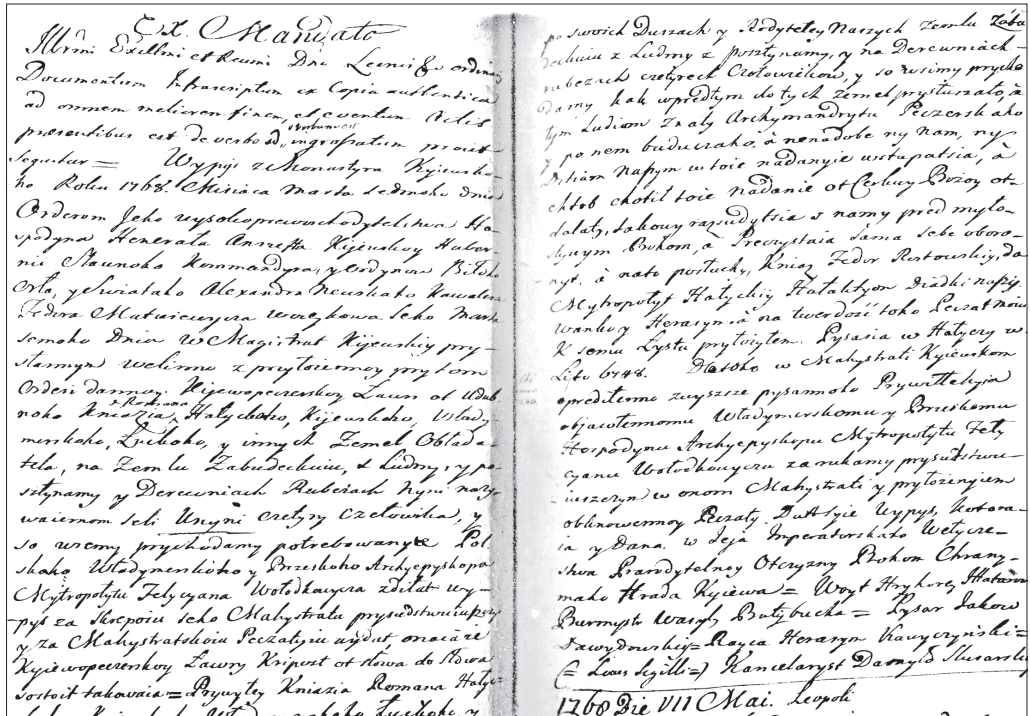 Ex Mandato
Illrmi Exellmi et Reumi Dni Leonis ordinis
Documentum Infrascriptum ex Copia authentica
ad omnem meliorem finem, et eventum Actis
præsentibus est de verbo ad verbum ingrossatum prout
sequitur = Wypys z Monastyra Kyiewsko-
ho Roku 1768. Misiaca Marta sedmoho dnia
Orderom Jeho wysokoprewoschodytelstwa Ho-
spodyna Henerała Anszefta Kijewskoy Huber-
nii Sławnoho Kommandyra, y ordynow Biłoho
Orła, y Swiataho Alexandra Newskaho Kawalera
Fedora Matwieiewycza woiejkowa seho Marta
semoho Dnia w Magistrat Kijewskiy pry-
słannym welinno z pryłozennoy pry tom
Orderi dannoy Kijewopeczerskoy Ławri ot Udil-
noho Kniazia Romana Hałyckoho, Kijewskoho, Włady-
merskoho, Łuckoho, y innych Zemel Obłada-
tela, na Zemlu Zabudeckuiu, z Ludmy, y po-
sztynamy y Derewniach Rubezach nyni nazy-
waiemom seli Unyni czetyry Czełowika, y
so wsemy prychodamy potrebowanyie Pol-
skoho Włodymerskoho y Brzeskoho Archyepyskopa
Mytropolytu Felycyana Wołodkowycza zdiłat wy-
pys za Skrepoiu seho Mahystratu prysudstwuiuszczych
y za Mahystratskoiu Peczatyiu
Kyiewopeczerskoy Ławry Kripost ot słowa do słowa
sostoit takowaia = Prywyley Kniazia Romana Hały-
po swoich Duszach y Rodyteley Naszych Zemlu Zabu-
deckuiu z Ludmy z posztynamy, y na Derewniach
rubezach czetyrech Czołowikow, y so wsimy prycho-
damy kak wpredtym do tych zemel prysłuszało, a
tym Ludiom znaty Archymandrytu Peczerskoho
y po nem buduczoho, a nenadobe ny nam, ny
Ditiam naszym w toie nadanyie wstupatsia, a
chtob chotił toie nadanie ot Cerkwy Bozoy ot-
dalaty, takowy razsudytsia s namy pred myło-
stywym Bohom, a Preczystaia sama sebe oboro-
nyt. a na to posłuchy, Kniaz Fedor Rostowskiy, da
Mytropolyt Hałyckiy Hałaktyon Diadki naszy.
Iwanko y Herasym a na twerdost toho Peczat moiu
K semu Lystu pryłozyłem. Pysasia w Hałyczy w
Lito 6748. Dla toho w Mahystrati Kyiewskom
opredilenno zwyszsze pysannoho Prywillehyia
objawlennomu Władymerskomu y Breskomu
Hospodynu Archyepyskopu Mytropolytu Fely-
cyanu Wołodkowyczu za rukamy prysutstwu-
iuszczych w onom Mahystrati y pryłozenyiem
obłnowennoy Peczaty. Dat syie wypys, kotora-
ia y Dana. w Jeja Imperatorskaho Wełycze-
stwa Prarodytelnoy Otczyzny Prokom Chrany-
maho Hrada Kyiewa = Woyt Hryhorey
Burmystr Wasyly Bałabucha = Pysar Jakow
Dawydowskiy = Rayca Herasym Krawczyński =
(= Locus Sigilli =) Kancelaryst Danyło Slusarski
1768 Die VII Mai. Leopoli